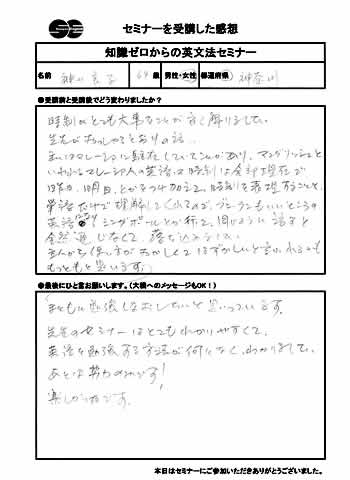 セミナーを受講した感想
知識ゼロからの英文法セミナー
名前 神山 69 歳 男性・女性 都道府県 神奈川
●受講前と受講後でどう変わりましたか？
時制がとても大事なことが良く解りました。
先生がおっしゃるとおりの話…
主人はマレーシアに駐在していたことがあり、マングリッシュと
いわれるマレーシア人の英語は時制は全部現在で
昨日、明日、とかをつけ加えて、時制を表現すること、
単語だけで理解してくれるので、ブロークンもいいところの
英語 シンガポールとか行って、同じように話すと
全然通じなくて、落ち込みました。
主人から使い方がおかしくてはずかしいと言われるのも
もっともと思います。
●最後にひと言お願いします。（大橋へのメッセージもOK！）
まともに勉強しなおしたいと思っています。
先生のセミナーはとてもわかりやすくて、
英語を勉強する方法が何となくわかりました。
あとは努力のみです！
楽しかったです。
本日はセミナーにご参加いただきありがとうございました。